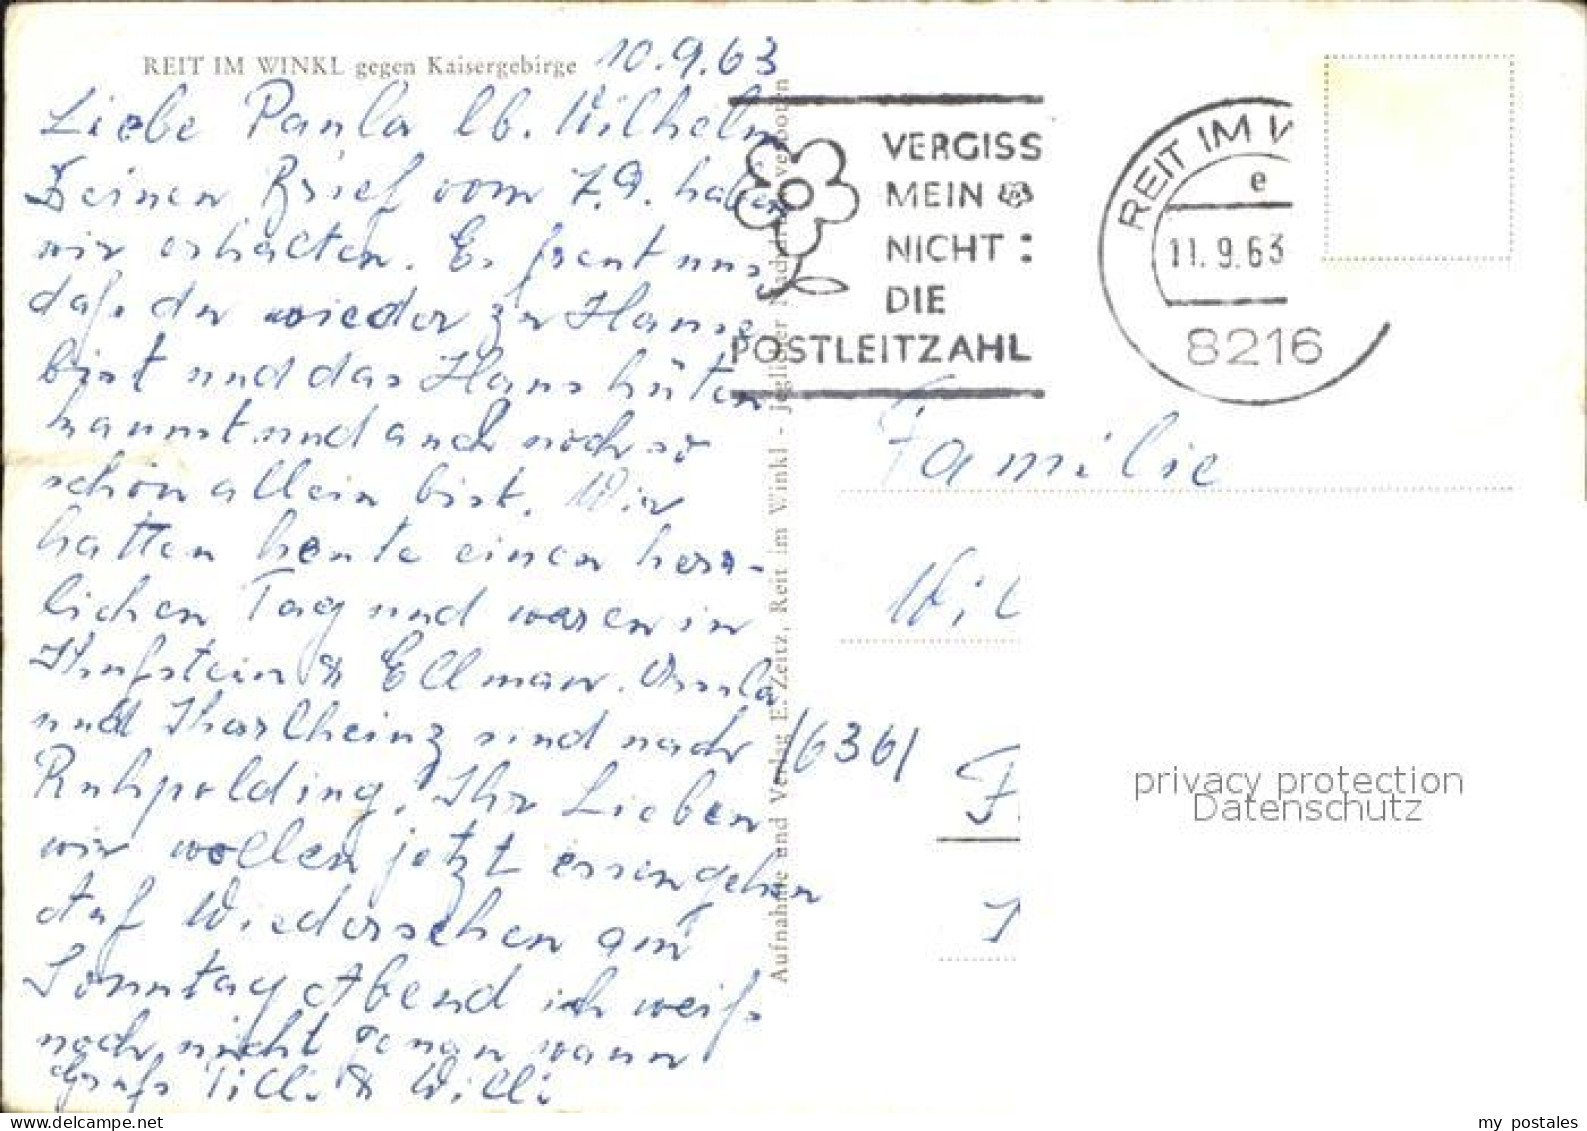 REIT IM WINKL gegen Kaisergebirge 10.9.63
Liebe Paula lb. Wilhelm
Deinen Brief vom 7.9. haben
wir erhalten. Es freut uns,
daß du wieder zu Hause
bist und das Haus hüten
kannst und auch noch so
schön allein bist. Wir
hatten heute einen herr-
lichen Tag und waren in
Khufstein & Ellmau. Ursula
und Kharlheinz sind nach
Ruhpolding. Ihr Lieben
wir wollen jetzt essengehen
Auf Wiedersehen am
Sonntag Abend ich weiß
noch nicht genau wann
Gruß Tilli & Willi
Aufnahme und Verlag E. Zeitz, Reit im Winkl - jeglicher Nachdruck verboten
VERGISS
MEIN
NICHT :
DIE
POSTLEITZAHL
REIT IM W
e
11.9.63
8216
Familie
Wil
/6361
F
privacy protection
Datenschutz
my postales